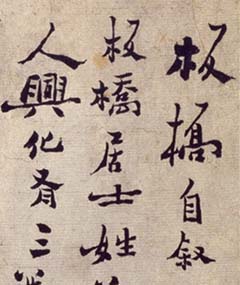 板橋自叙
板橋居士姓
人興化有三